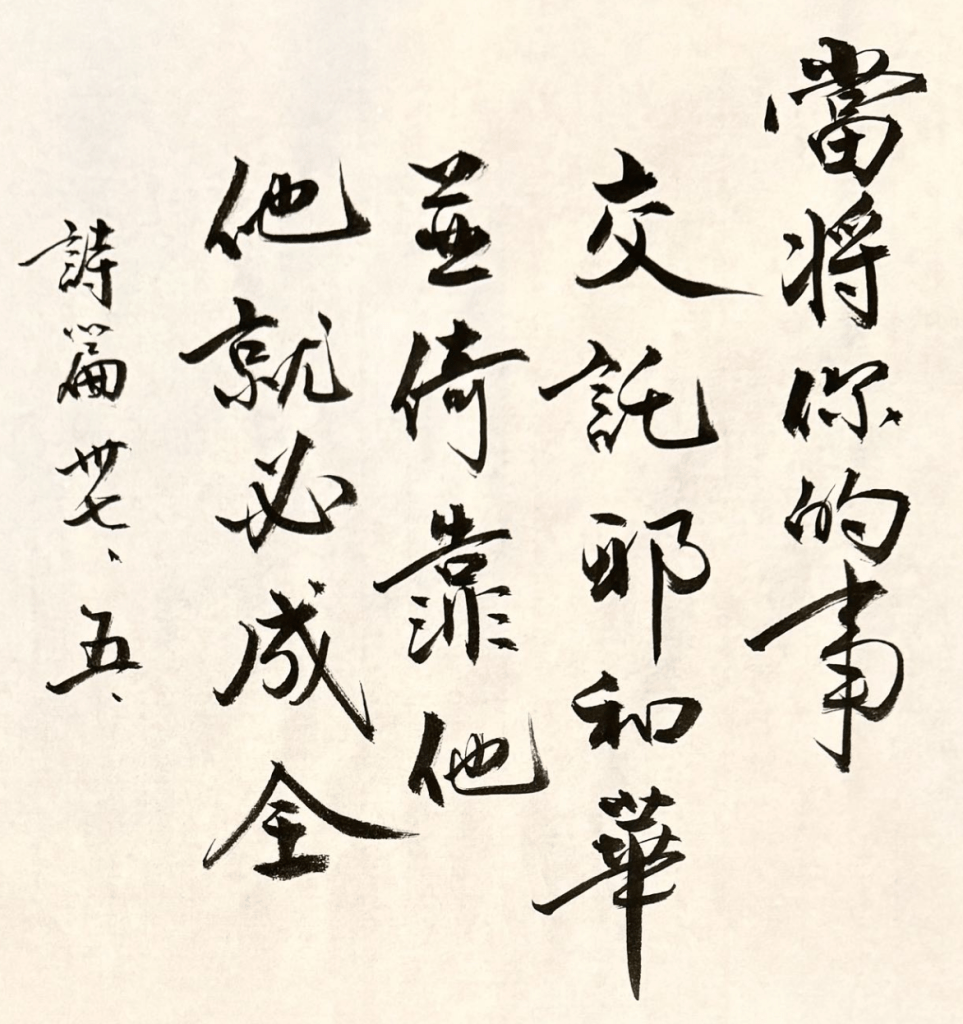 當將你的事
交託耶和華
並倚靠他
他就必成全
詩篇卅七、五、